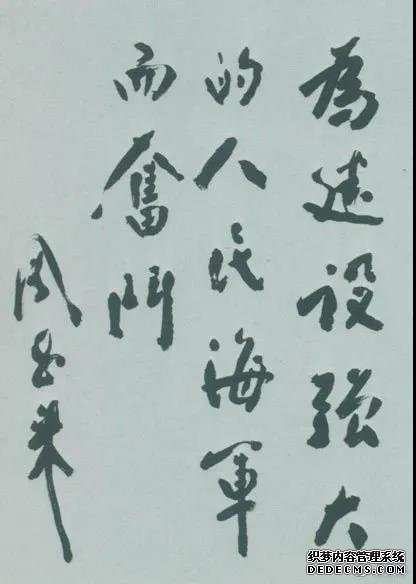 為建设強大
的人民海軍
而奮鬥
周恩来
织梦内容管理系统
DEDECMS.COM